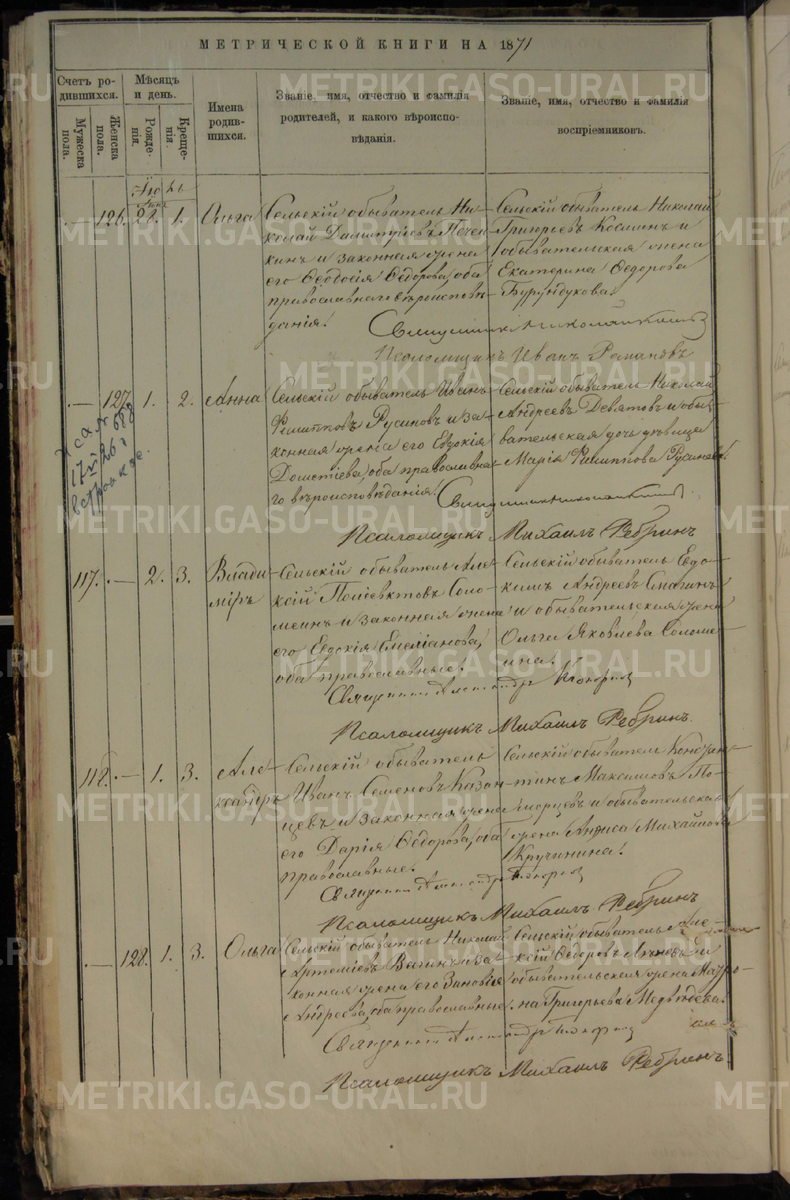 МЕТРИЧЕСКОЙ КНИГИ НА 1871
Счетъ родившихся.
Мужеска пола.
Женска пола.
Мѣсяцъ и день.
Рожденія.
Крещенія.
Имена родившихся.
Званіе, имя, отчество и фамилія родителей, и какого вѣроисповѣданія.
Званіе, имя, отчество и фамилія воспріемниковъ.
126. 1. Ольга
Сельскій обыватель Николай Димитріевъ
кинъ и законная жена
его Ѳеодосія Ѳедорова, оба
православнаго вѣроисповѣданія.
Сельскій обыватель Николай
Григорьевъ Косминъ и
обывательская жена
Екатерина Ѳедорова
Бурундукова.
Священникъ
Псаломщикъ Иванъ
127. 1. 2. Анна
Сельскій обыватель Иванъ
Филипповъ Русиновъ и законная жена его Евдокія
Дометіева, оба православнаго вѣроисповѣданія.
Сельскій обыватель Николай
Андреевъ Девятовъ и обывательская дочь дѣвица
Марія Филиппова Русинова.
Священникъ
Псаломщикъ Михаилъ Ребринъ
117. 2. 3. Владиміръ
Сельскій обыватель Алексій Поліевктовъ Соломеинъ и законная жена
его Евдокія Емеліанова,
оба православные.
Сельскій обыватель Евдокимъ Андреевъ Смагинъ
и обывательская жена
Ольга Яковлева Соломеина.
Священникъ Александръ
Псаломщикъ Михаилъ Ребринъ.
118. 1. 3. Александръ
Сельскій обыватель
Иванъ Семеновъ Казанцевъ и законная жена
его Дарія Ѳедорова, оба
православные.
Сельскій обыватель Константинъ Максимовъ Поморцевъ и обывательская
жена Анфиса Михайлова
Кручинина.
Священникъ Александръ
Псаломщикъ Михаилъ Ребринъ
128. 1. 3. Ольга
Сельскій обыватель Николай
Артеміевъ Вагинъ и законная жена его Зиновія
Андреева, оба православные.
Сельскій обыватель Алексій Ѳедоровъ
обывательская жена Матрона Григорьева Медвѣдева.
Священникъ Александръ
Псаломщикъ Михаилъ Ребринъ
METRIKI.GASO-URAL.RU